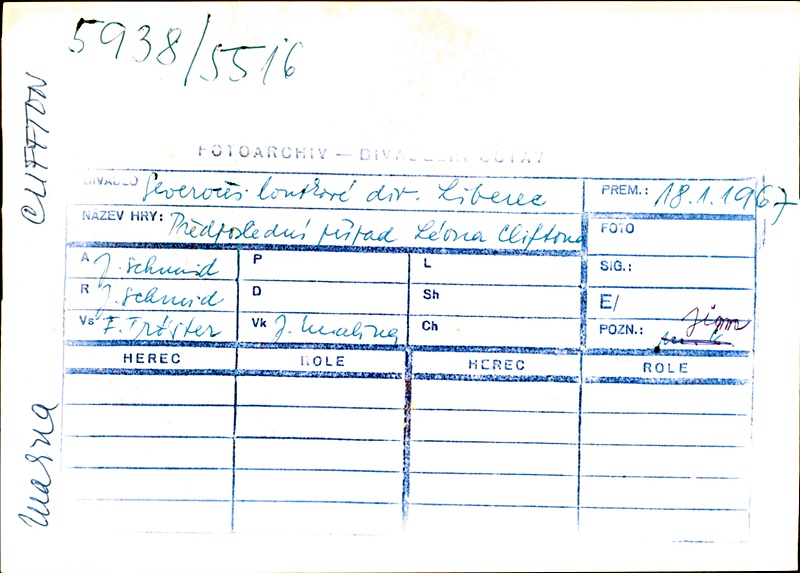 5938/5516
CLIFTON
FOTOARCHIV — DIVADELNÍ ÚSTAV
DIVADLO Severočes. loutkové div. Liberec
PREM.: 18.1.1967
NÁZEV HRY: Předposlední případ Léona Cliftona
FOTO
A J. Schmid
P
L
SIG.:
R J. Schmid
D
Sh
E/
Vs F. Tröster
Vk J. Malina
Ch
POZN.:
HEREC ROLE HEREC ROLE